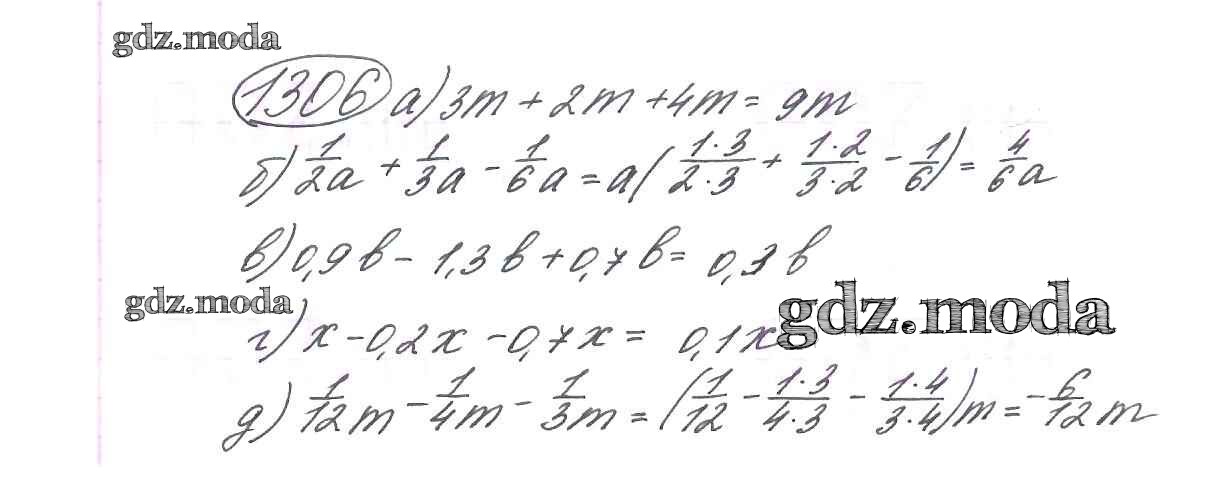 gdz.moda
1306 а) 3m + 2m + 4m = 9m
б) 1/2 a + 1/3 a - 1/6 a = a( 1·3/2·3 + 1·2/3·2 - 1/6) = 4/6 a
в) 0,9b - 1,3b + 0,7b = 0,3b
gdz.moda
gdz.moda
г) x - 0,2x - 0,7x = 0,1x
д) 1/12 m - 1/4 m - 1/3 m = (1/12 - 1·3/4·3 - 1·4/3·4)m = -6/12 m